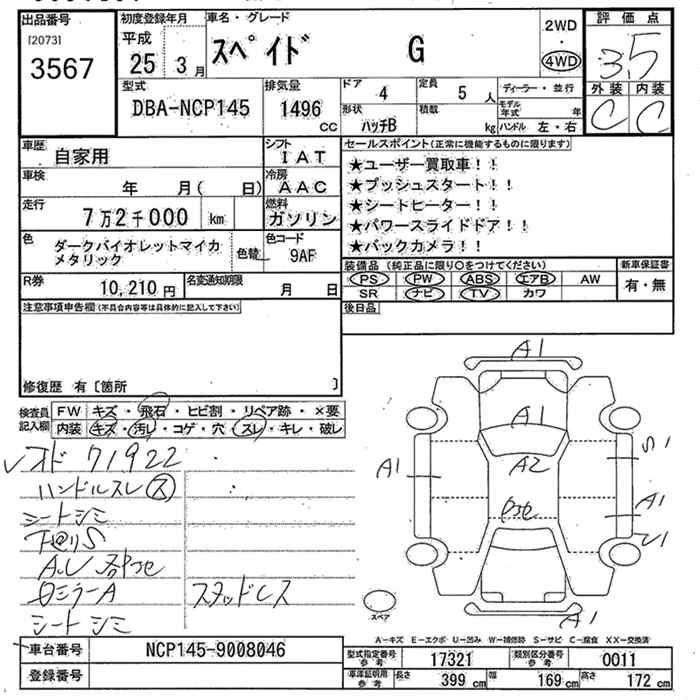 出品番号
[2073]
3567
初度登録年月
平成
25 3 月
車名・グレード
スペイド G
2WD
・
4WD
評価点
3.5
外装 内装
C C
型式
DBA-NCP145
排気量
1496
CC
ドア 4
定員 5 人
形状
ハッチB
積載
kg
ディーラー・並行
モデル年式 年
ハンドル 左・右
車歴
自家用
シフト
IAT
車検
年 月( 日)
冷房
AAC
走行
7万2千000 km
燃料
ガソリン
色
ダークバイオレットマイカ
メタリック
色替
色コード
9AF
R券
10,210 円
名変通知期限
月 日
セールスポイント(正常に機能するものに限ります)
★ユーザー買取車!!
★プッシュスタート!!
★シートヒーター!!
★パワースライドドア!!
★バックカメラ!!
装備品 (純正品に限り○をつけてください)
PS PW ABS エアB AW
SR ナビ TV カワ
新車保証書
有・無
後日品
注意事項申告欄(不具合内容等は具体的に記入して下さい)
修復歴 有〔箇所 〕
検査員
記入欄
FW キズ・飛石・ヒビ割・リペア跡・×要
内装 キズ・汚レ・コゲ・穴・スレ・キレ・破レ
オド 71922
ハンドルスレ ス
シートシミ
スタッドレス
シートシミ
A1
A1
A2
A1
S1
A1
A1
スペア
A-キズ E-エクボ U-凹み W-補修跡 S-サビ C-腐食 XX-交換済
車台番号
NCP145-9008046
登録番号
型式指定番号
参考
17321
類別区分番号
参考
0011
車庫証明用
参考
長さ 399 cm 幅 169 cm 高さ 172 cm